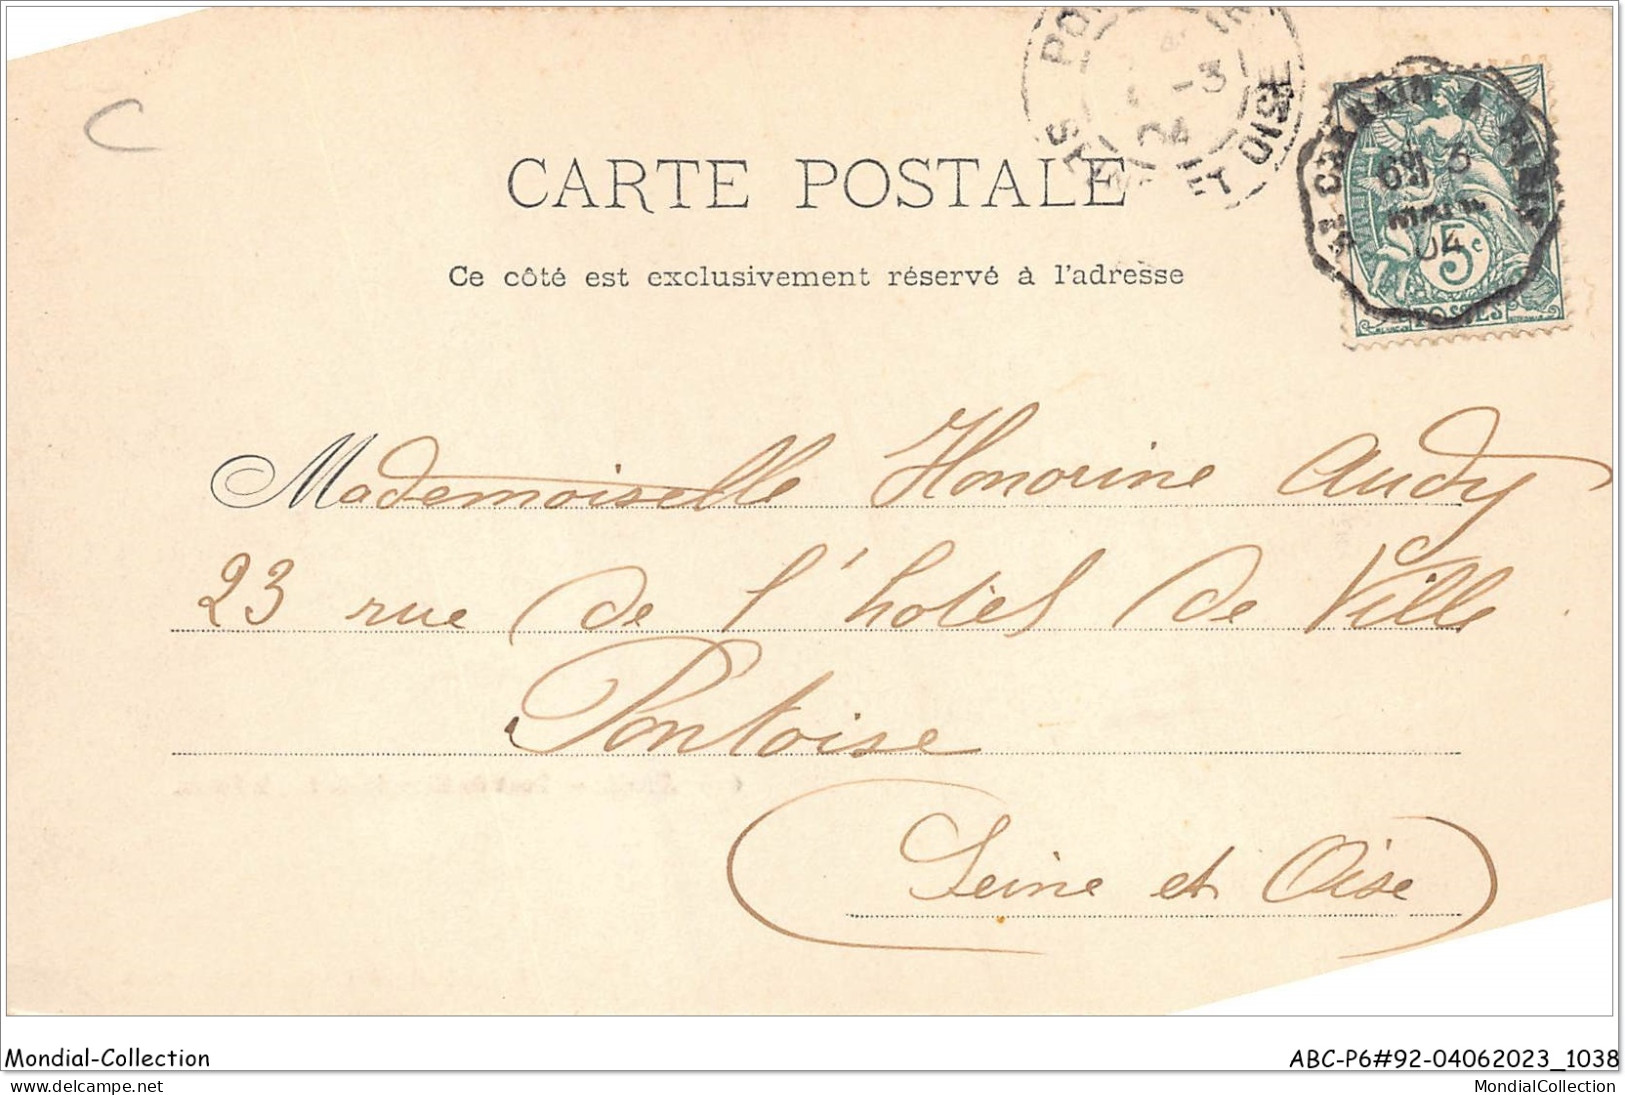 C
ET OISE
-3
04
ST GERMAIN A PARIS
04
5c
POSTES
CARTE POSTALE
Ce côté est exclusivement réservé à l'adresse
Mademoiselle Honorine Audy
23 rue de l'hotel de Ville
Pontoise
(Seine et Oise)
Mondial-Collection
ABC-P6#92-04062023_1038
www.delcampe.net
MondialCollection